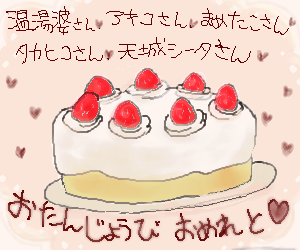 温湯婆さん♥アキコさん♥まめたこさん
タカヒコさん♥天城シータさん
おたんじょうび おめれと♡